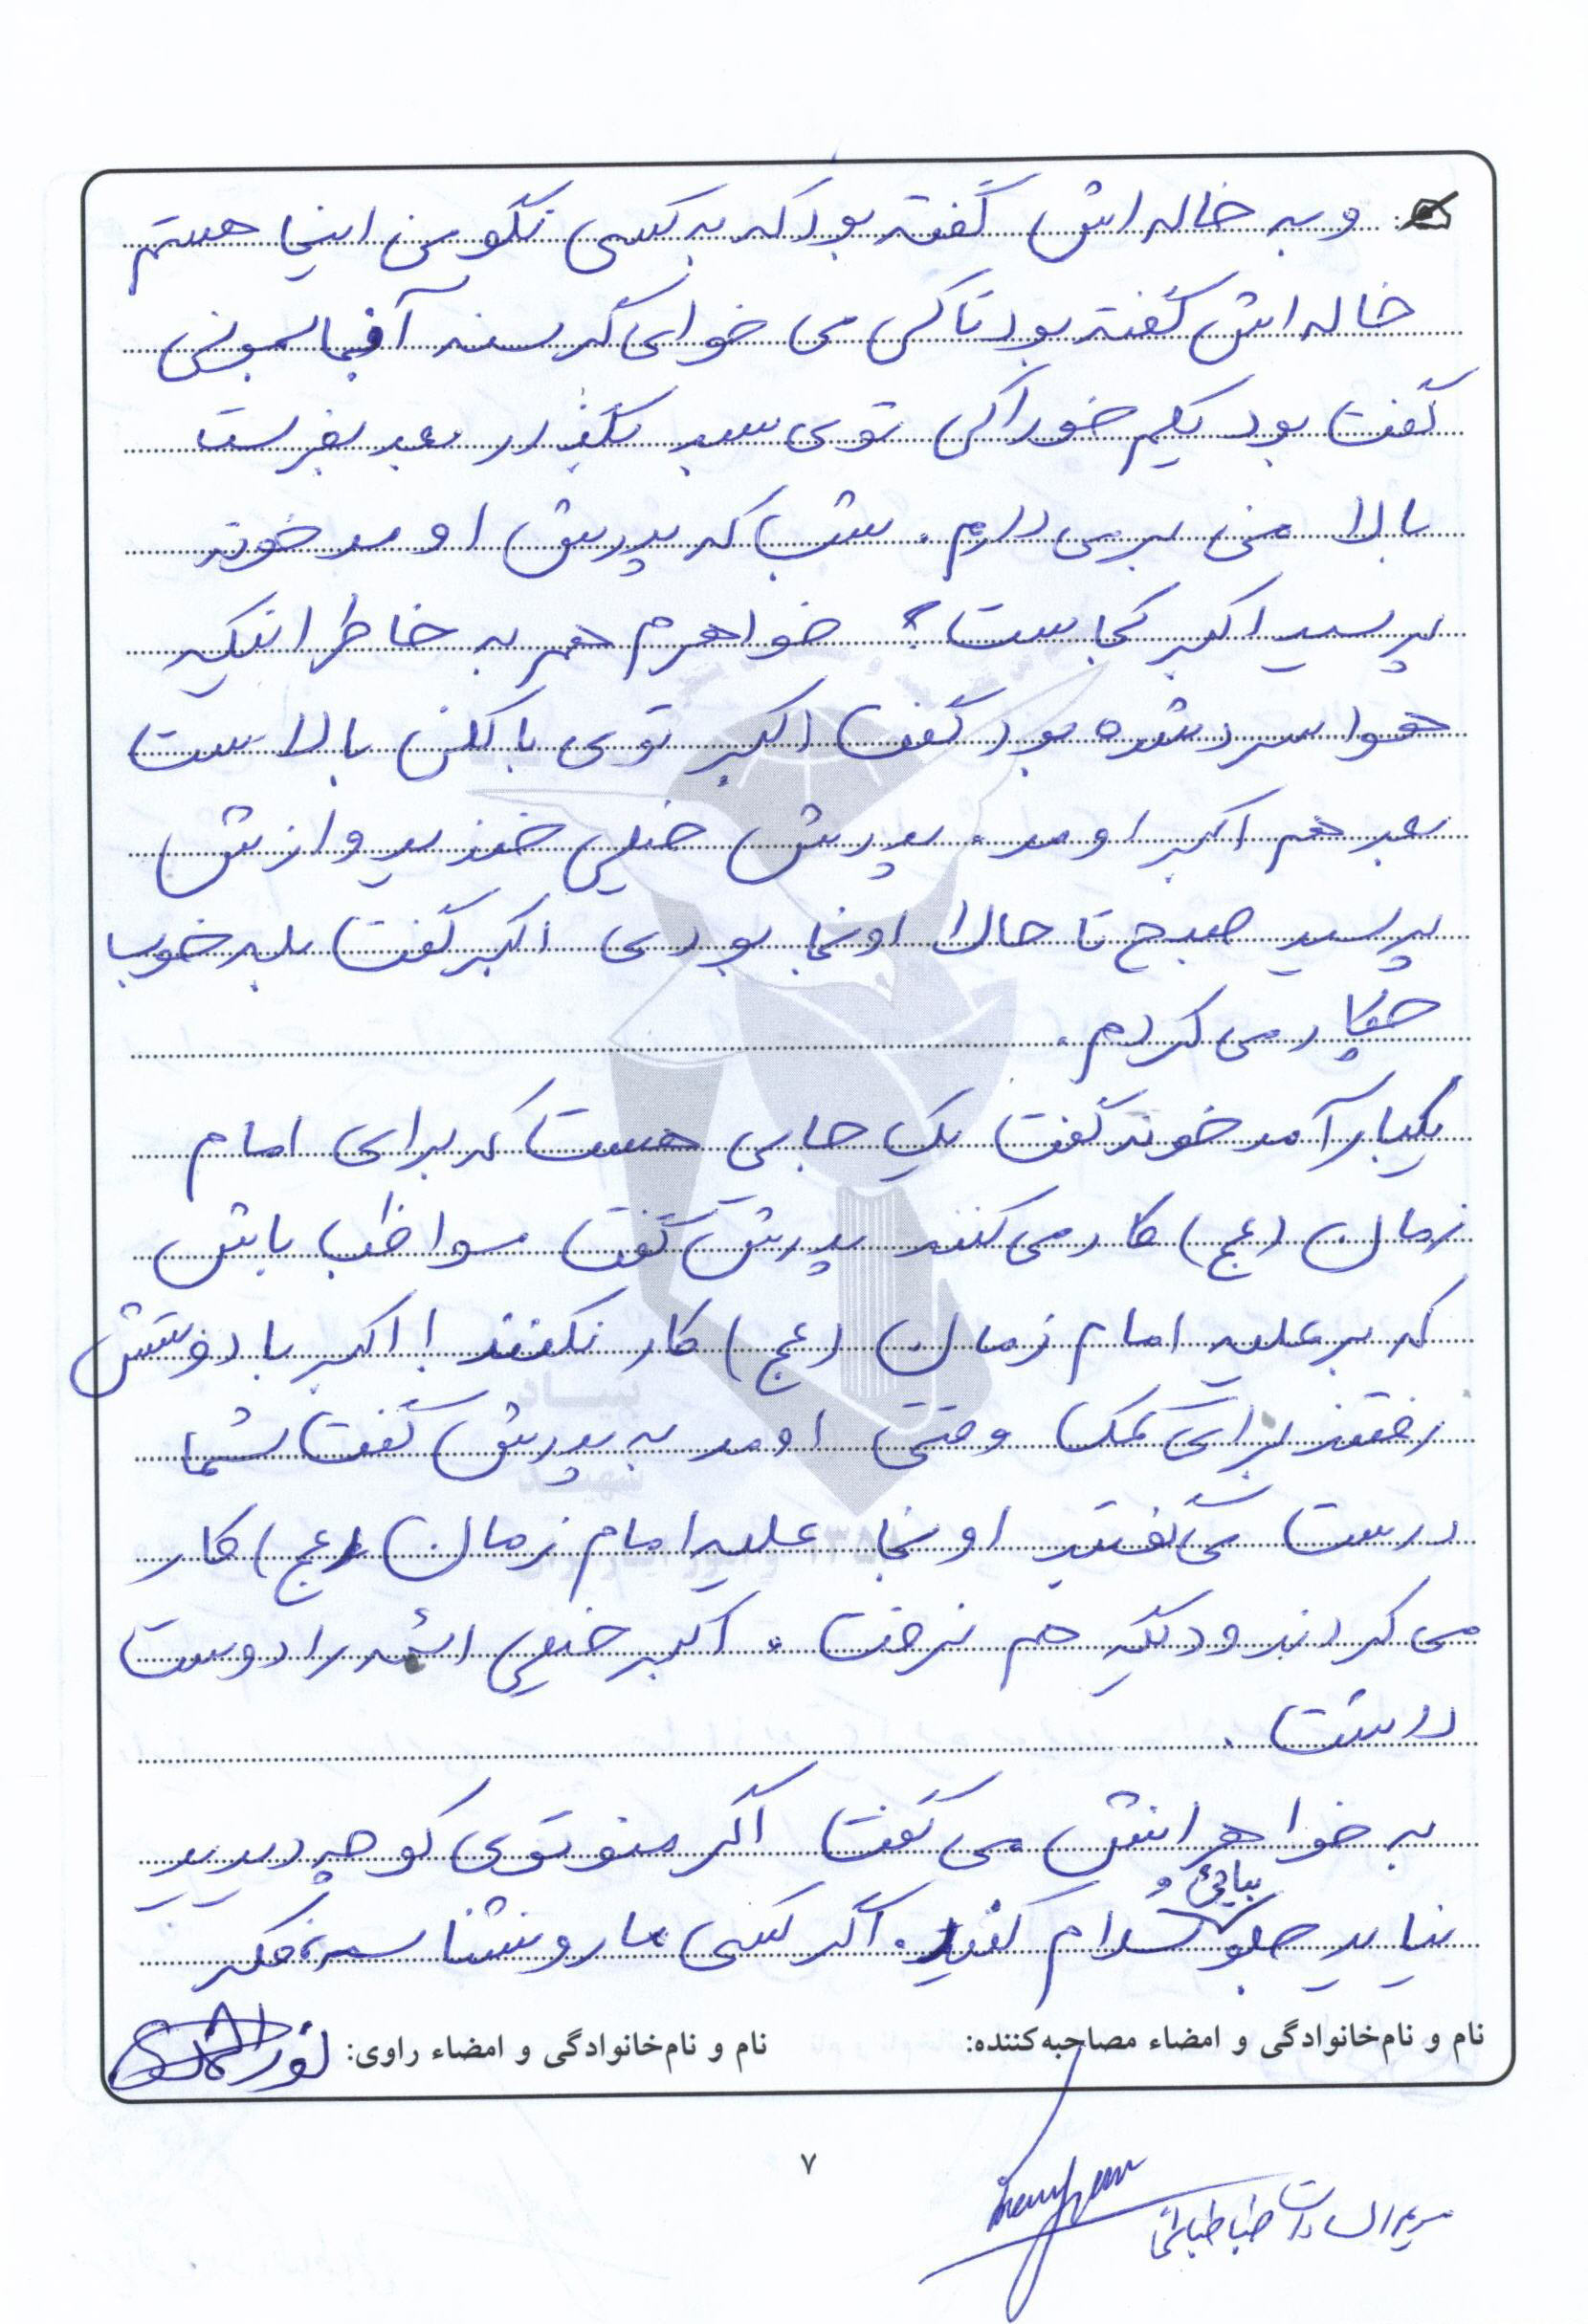 و به خاله اش گفته بود که به کسی نگویین اینجا هستم
خاله اش گفته بود تا کی می خوای گرسنه آنجا بمونی
گفت بود یکم خوراکی توی سبد بگذار بعد بفرست
بالا من بر می دارم. شب که پدرش اومد خونه
پرسید اکبر کجاست؟ خواهرم هم به خاطر اینکه
هوا سرد شده بود گفت اکبر توی بالکن بالاست
بعد هم اکبر اومد. پدرش خیلی خندید و ازش
پرسید صبح تا حالا اونجا بودی اکبر گفت بله خوب
چکار می کردم.
یکبار آمد خونه گفت یک جایی هست که برای امام
زمان (عج) کار می کنند پدرش گفت مواظب باش
که بر علیه امام زمان (عج) کار نکنند! اکبر با دوستش
رفتند برای کمک وقتی اومد به پدرش گفت شما
درست می گفتید اونجا علیه امام زمان (عج) کار
می کردند و دیگه هم نرفت. اکبر خیلی ائمه را دوست
داشت.
به خواهرانش می گفت اگر منو توی کوچه دیدید
نیاید جلو سلام کنید. اگر کسی ما رو نشناسه، فکر
نام و نام‌خانوادگی و امضاء مصاحبه‌کننده: نام و نام‌خانوادگی و امضاء راوی:
۷
مریم السادات طباطبائی